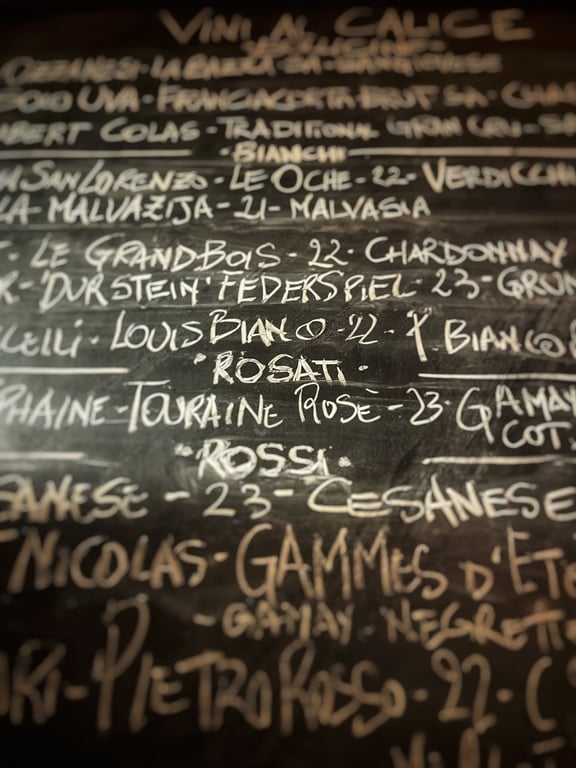 VINI AL CALICE
BOLLICINE
OZZANESI - LA BAZZA SA - SANGIOVESE
SOLO UVA - FRANCIACORTA BRUT SA - CHA
BERT COLAS - TRADITIONAL GRAN CRU - SA
• BIANCHI •
SAN LORENZO - LE OCHE - 22 - VERDICCHI
LA MALVAZIJA - 21 - MALVASIA
- LE GRAND BOIS - 22 - CHARDONNAY
R - 'DURSTEIN' FEDERSPIEL - 23 - GRUN
LELLI - LOUIS BIANCO - 22 - BIANCO
• ROSATI •
PHAINE - TOURAINE ROSÈ - 23 - GAMAY
COT.
• ROSSI •
SANESE - 23 - CESANESE
NICOLAS - GAMMES D'ÉT
- GAMAY - NEGRETT
ARI - PIETROROSSO - 22 - C